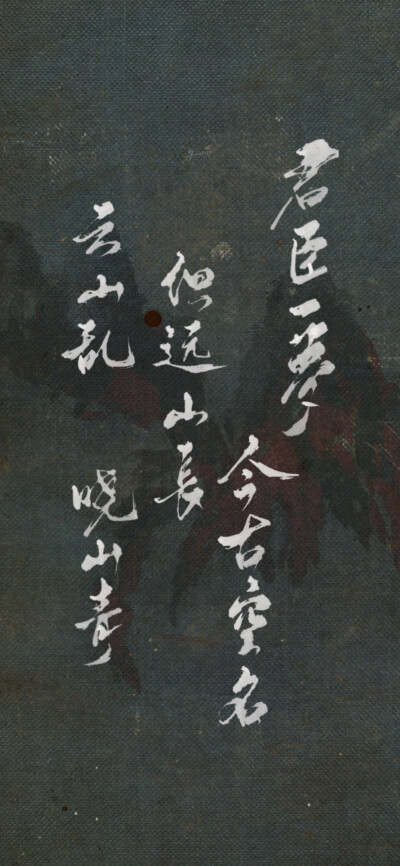 君臣一夢
今古空名
但远山長
云山乱
晓山青